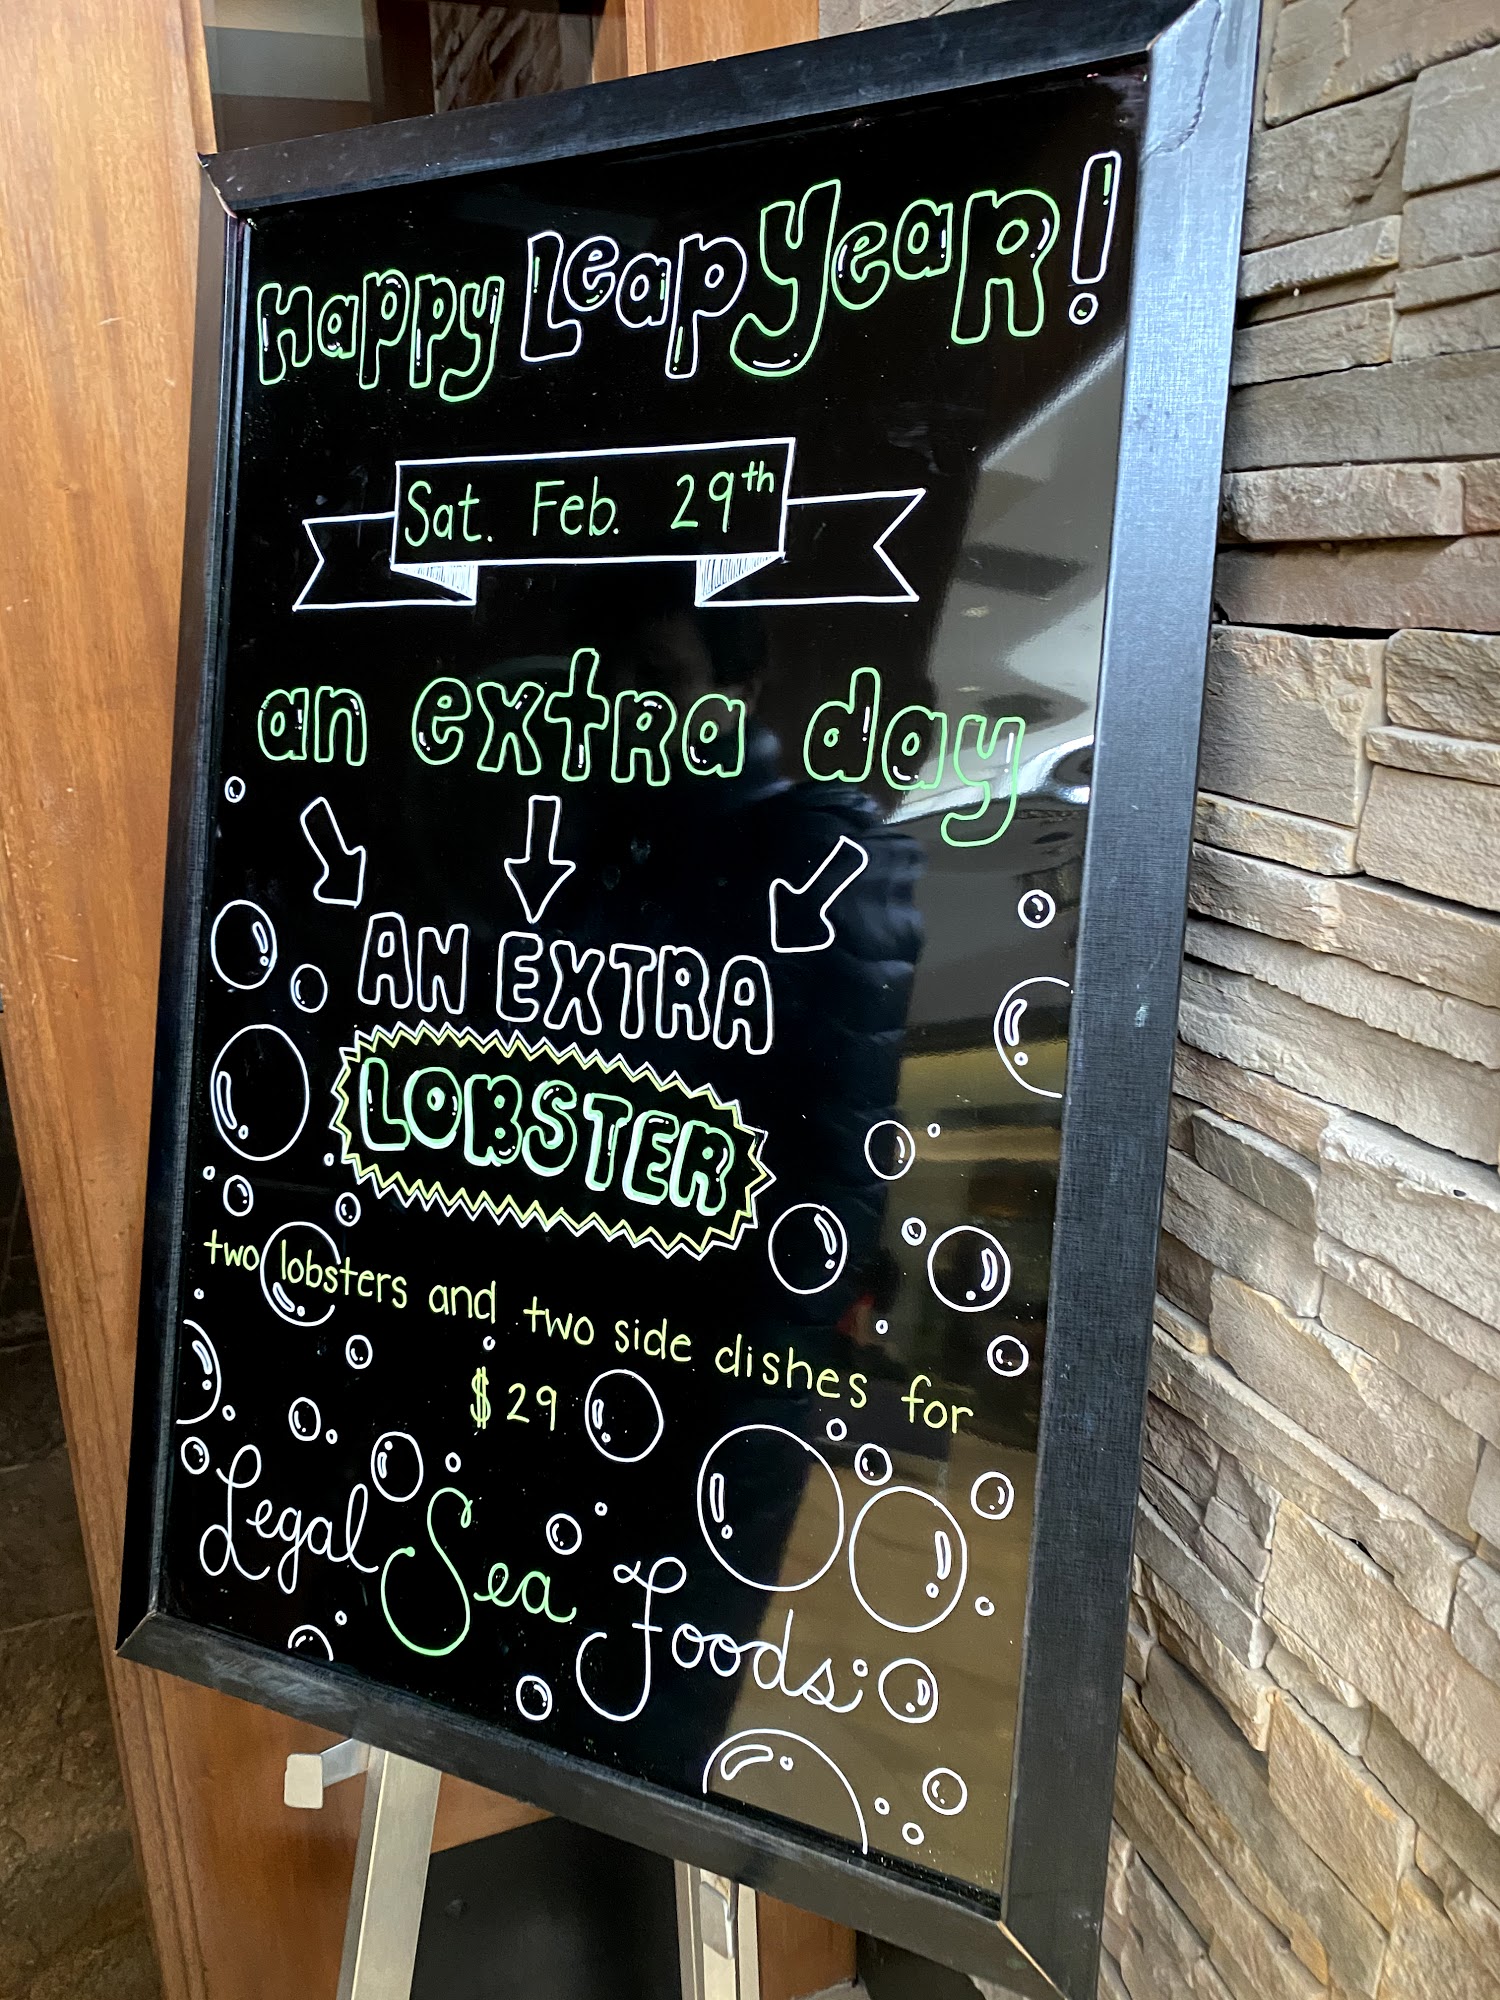 Happy Leap Year!
Sat. Feb. 29th
an extra day
AN EXTRA
LOBSTER
two lobsters and two side dishes for
$29
Legal Sea Foods